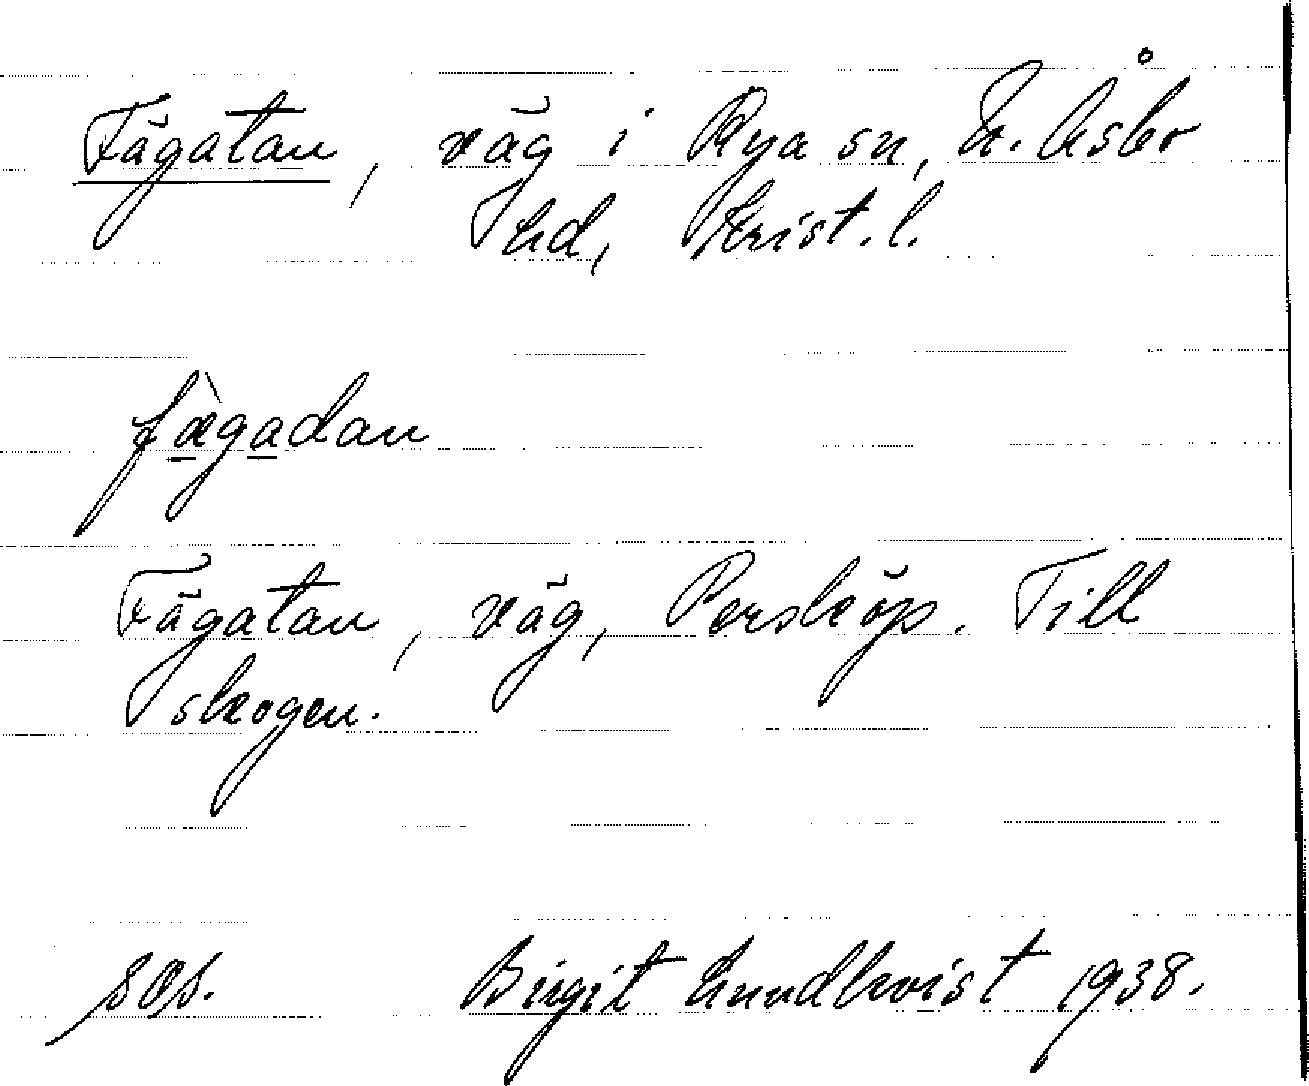 Fägatan, väg i Rya sn, N. Åsbo
hd, Krist. l.
fæ̀gadan
Fägatan, väg, Perskõp. Till
skogen.
Birgit Lundkvist 1938.